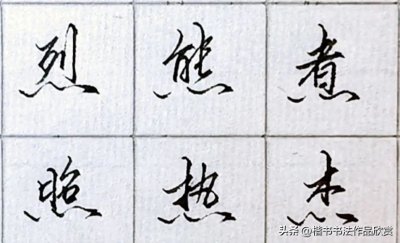 烈熊煮
照热杰
头条@楷书书法作品欣赏